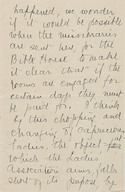 happened, we wonder
if it would be possible
when the missionaries
are sent here, for the
Bible House to make
it clear that if the
rooms are engaged for
certain days they must
be paid for. I think
by this chopping and
changing of capricious
ladies. the object for
which the Ladies
Association aims, falls
short of its purpose by